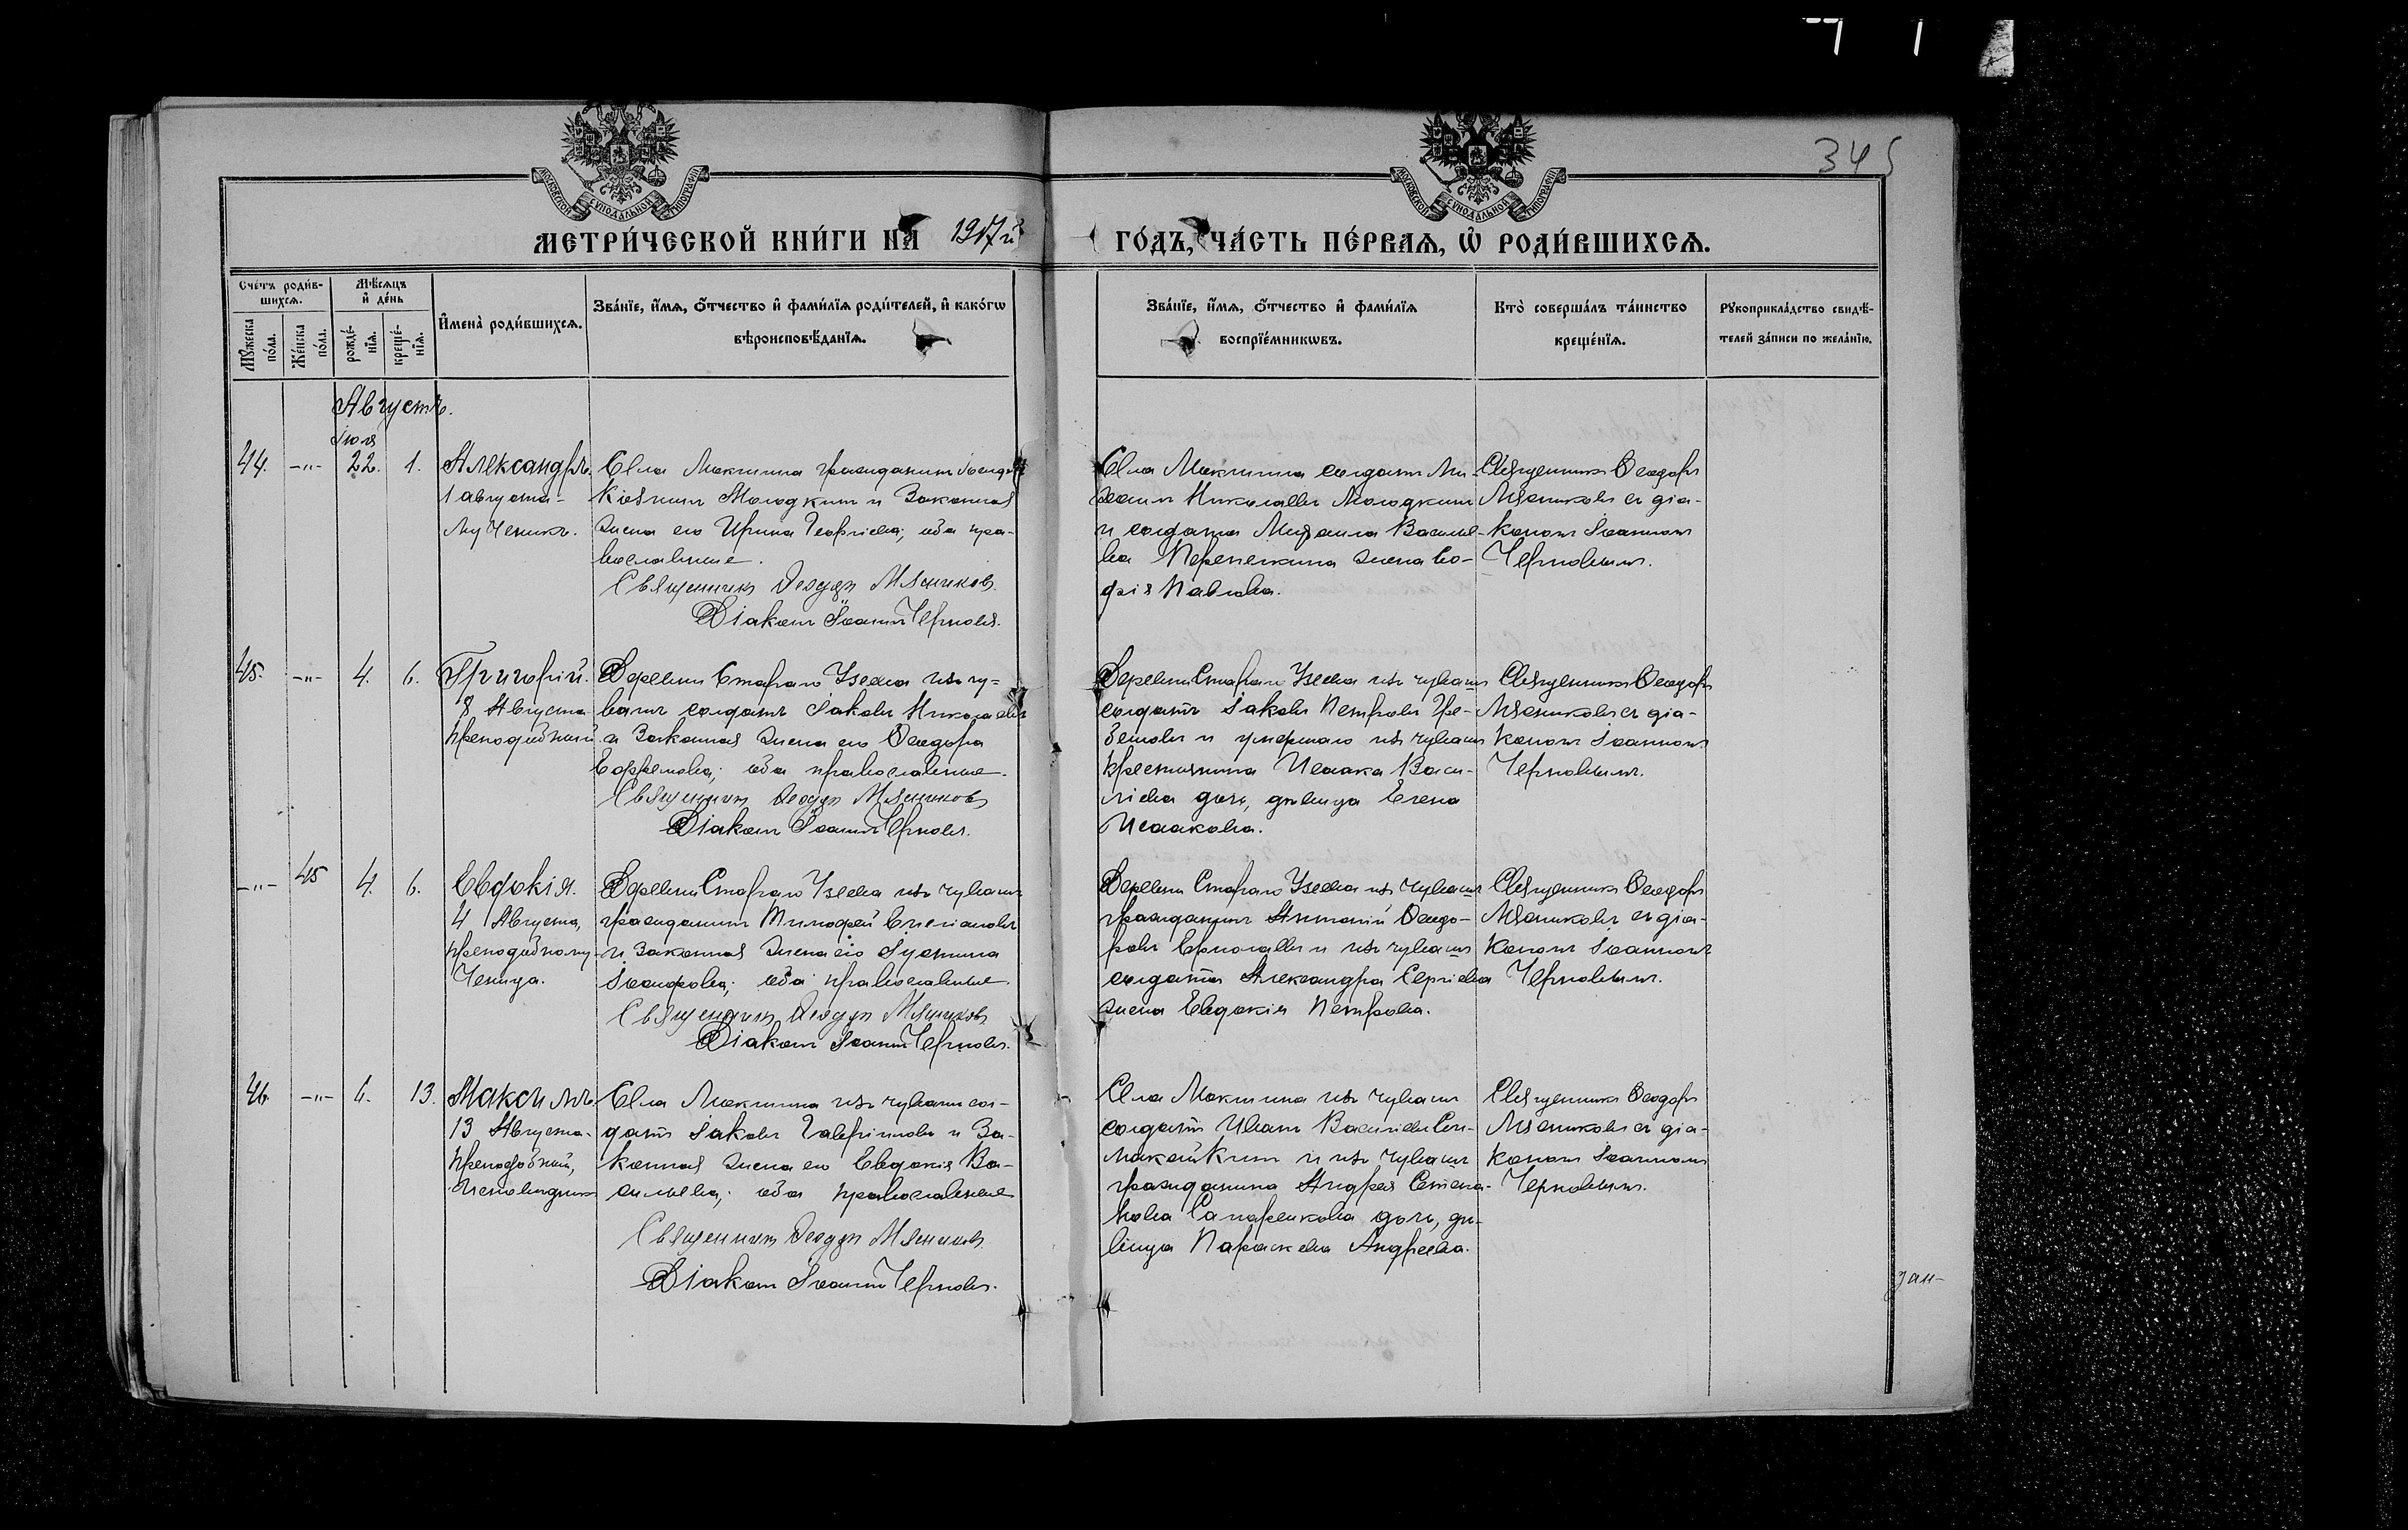 345
МОСКОВСКОЙ СУНОДАЛЬНОЙ ТИПОГРАФІИ
МОСКОВСКОЙ СУНОДАЛЬНОЙ ТИПОГРАФІИ
МЕТРИ́ЧЕСКОЙ КНИ́ГИ НА 1917й
ГО́ДЪ, ЧА́СТЬ ПЕ́РВАЯ, Ѡ҆ РОДИ́ВШИХСЯ.
Сче́тъ роди́в-
шихсѧ.
Мꙋ́жеска по́ла.
Же́нска по́ла.
Мѣ́сѧцъ
и҆ де́нь
рожде́-
нїѧ.
креще́-
нїѧ.
И҆мена̀ роди́вшихсѧ.
Зва́нїе, и҆́мѧ, ѻ҆́тчество и҆ фами́лїѧ роди́телей, и҆ како́гѡ
вѣроисповѣ́данїѧ.
Зва́нїе, и҆́мѧ, ѻ҆́тчество и҆ фами́лїѧ
воспрїе́мникѡвъ.
Кто̀ соверша́лъ та́инство
креще́нїѧ.
Рꙋкоприкла́дство свидѣ́-
телей за́писи по жела́нїю.
Августъ.
Іюля
44. -"- 22. 1.
Александръ.
1 августа-
мученикъ.
Села Мокшина гражданинъ
Молодкинъ и законная
жена его Ирина Георгіева; оба пра-
вославные.
Священникъ Ѳеодоръ Мясниковъ.
Діаконъ Іоаннъ Черновъ.
Села Мокшина солдатъ Ми-
хаилъ Николаевъ Молодкинъ
и солдата Михаила Василье-
ва Перепелкина жена Со-
фія Павлова.
Священникъ Ѳеодоръ
Мясниковъ съ діа-
кономъ Іоанномъ
Черновымъ.
45. -"- 4. 6.
Григорій.
8 Августа
преподобный.
Деревни Стараго Узеева изъ чу-
вашъ солдатъ Іаковъ Николаевъ
и законная жена его Ѳеодора
Ефремова; оба православные.
Священникъ Ѳеодоръ Мясниковъ
Діаконъ Іоаннъ Черновъ.
Деревни Стараго Узеева изъ чувашъ
солдатъ Іаковъ Петровъ Гре-
бешовъ и умершаго изъ чувашъ
крестьянина Исаака Васи-
ліева дочь, дѣвица Елена
Исаакова.
Священникъ Ѳеодоръ
Мясниковъ съ діа-
кономъ Іоанномъ
Черновымъ.
-"- 45 4. 6.
Евдокія.
4 Августа,
преподобному-
ченица.
Деревни Стараго Узеева изъ чувашъ
гражданинъ Тимофей
и законная жена его Іустина
Іосифова; оба православные
Священникъ Ѳеодоръ Мясниковъ
Діаконъ Іоаннъ Черновъ.
Деревни Стараго Узеева изъ чувашъ
гражданинъ Антоній Ѳеодо-
ровъ Ермолаевъ и изъ чувашъ
солдата Александра Сергіева
жена Евдокія Петрова.
Священникъ Ѳеодоръ
Мясниковъ съ діа-
кономъ Іоанномъ
Черновымъ.
46. -"- 6. 13.
Максимъ.
13 Августа.
преподобный,
исповѣдникъ
Села Мокшина изъ чувашъ сол-
датъ Іаковъ Гавріиловъ и за-
конная жена его Евдокія Ва-
сильева; оба православные
Священникъ Ѳеодоръ Мясниковъ.
Діаконъ Іоаннъ Черновъ.
Села Мокшина изъ чувашъ
солдатъ Иванъ Василіевъ
и изъ чувашъ
гражданина Андрея Степа-
нова дочь, дѣ-
вица Параскева Андреева.
Священникъ Ѳеодоръ
Мясниковъ съ діа-
кономъ Іоанномъ
Черновымъ.